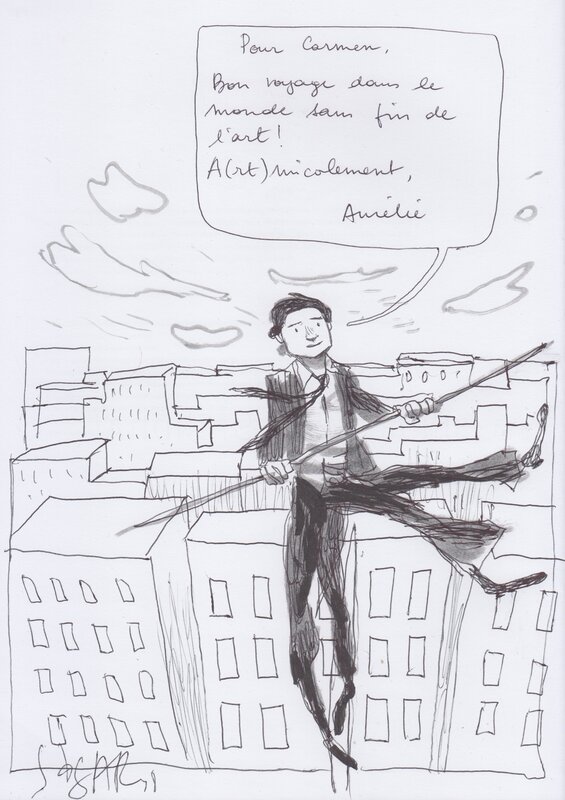 Pour Carmen,
Bon voyage dans le
monde sans fin de
l'art!
A(rt)micalement,
Aurélie